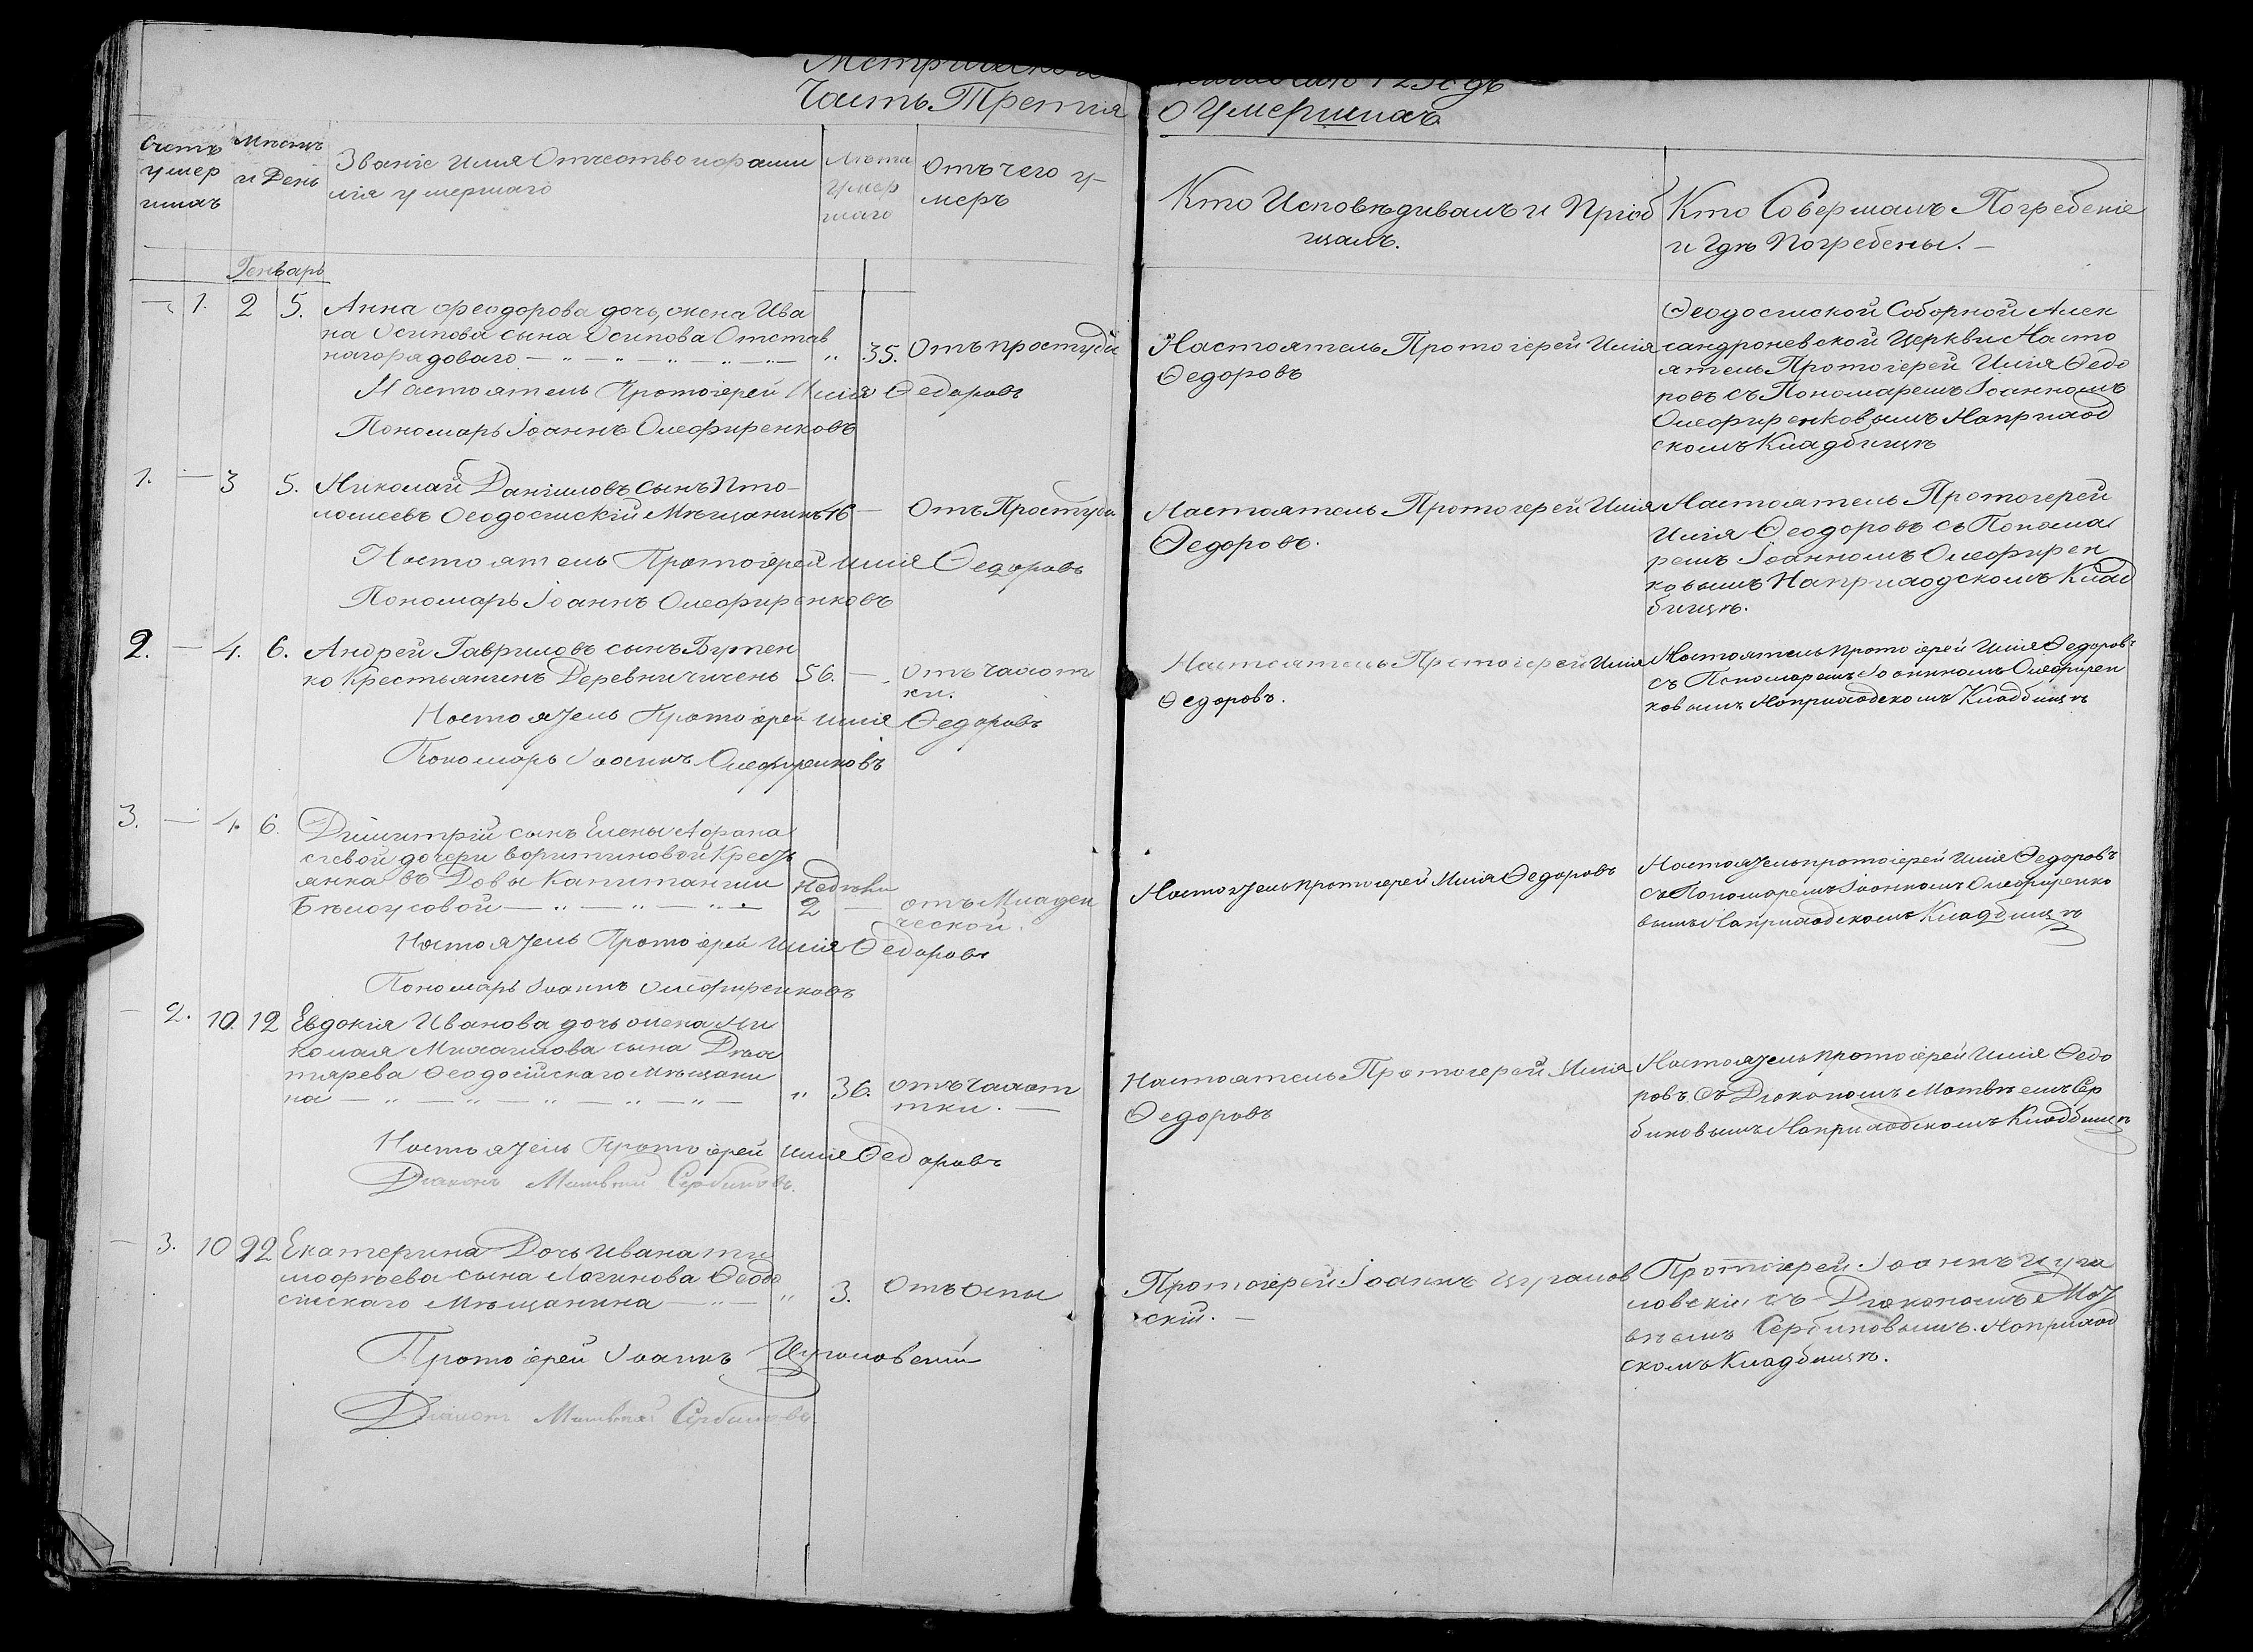 Часть Третія
О Умершихъ
Счетъ умер шихъ
Мѣсяцъ и День
Званіе Имя Отчество и фами
лія умершаго
Лѣта умер шаго
Отъ чего у-
меръ
Кто Исповѣдивалъ и Пріоб
щалъ.
Кто Совершалъ Погребеніе
и Гдѣ Погребены. —
Генварь
— 1. 2 5. Анна Феодорова дочь, жена Ива
на Осипова сына Осипова Отстав
нагорядоваго — „ — „ — „ 35. Отъ простуды
Настоятель Протоіерей Илія Ѳедоровъ
Пономарь Іоаннъ Олефиренковъ
Настоятель Протоіерей Илія
Ѳедоровъ
Ѳеодосійской Соборной Алек
сандроневской Церкви Насто
ятель Протоіерей Илія Ѳедо
ровъ съ Пономаремъ Іоанномъ
Олефиренковымъ Наприход
скомъ Кладбищѣ
1. — 3 5. Николай Даніиловъ сынъ Пто-
ломеевъ Ѳеодосійскій Мѣщанинъ 16 — Отъ Простуды
Настоятель Протоіерей Илія Ѳедоровъ
Пономарь Іоаннъ Олефиренковъ
Настоятель Протоіерей Илія
Ѳедоровъ.
Настоятель Протоіерей
Илія Ѳеодоровъ съ Понома
ремъ Іоанномъ Олефирен
ковымъ Наприходскомъ Клад
бищѣ.
2. — 4. 6. Андрей Гавриловъ сынъ Бутен
ко Крестьянинъ Деревни 56. — отъ Чахот
ки.
Настоятель Протоіерей Илія Ѳедоровъ
Пономарь Іоаннъ Олефиренковъ
Настоятель Протоіерей Илія
Ѳедоровъ.
Настоятель Протоіерей Илія Ѳедоровъ
съ Пономаремъ Іоанномъ Олефирен
ковымъ Наприходскомъ Кладбищѣ
3. — 4. 6. Димитрій сынъ Елены Афана
сіевой дочери Кресть
янка въ Довы Капитанши Недѣли
Бѣлоусовой — „ — „ — „ — 2 — отъ Младен
ческой.
Настоятель Протоіерей Илія Ѳедоровъ
Пономарь Іоаннъ Олефиренковъ
Настоятель Протоіерей Илія Ѳедоровъ
Настоятель протоіерей Илія Ѳедоровъ
съ Пономаремъ Іоанномъ Олефиренко
вымъ Наприходскомъ Кладбищѣ
— 2. 10. 12 Евдокія Иванова дочь жена Ни
колая Михаилова сына Дѣх
тярева Ѳеодосійскаго Мѣщани
на — „ — „ — „ — „ — „ — „ 36. отъ Чахот
тки. —
Настоятель Протоіерей Илія Ѳедоровъ
Діаконъ Матвѣй Сербиновъ.
Настоятель Протоіерей Илія
Ѳедоровъ
Настоятель протоіерей Илія Ѳедо
ровъ Съ Діякономъ Матвѣемъ Сер
биновымъ Наприходскомъ Кладбищѣ
— 3. 10 12 Екатерина Дочь Ивана Ти
мофѣева сына Логинова Ѳеодо
сійскаго Мѣщанина — „ — „ 3. Отъ Оспы
Протоіерей Іоаннъ Цугаловскій
Діаконъ Матвѣй Сербиновъ.
Протоіерей Іоаннъ Цугалов
скій. —
Протоіерей Іоаннъ Цуга
ловскій съ Діякономъ Мат
вѣемъ Сербиновымъ. Наприход
скомъ Кладбищѣ.